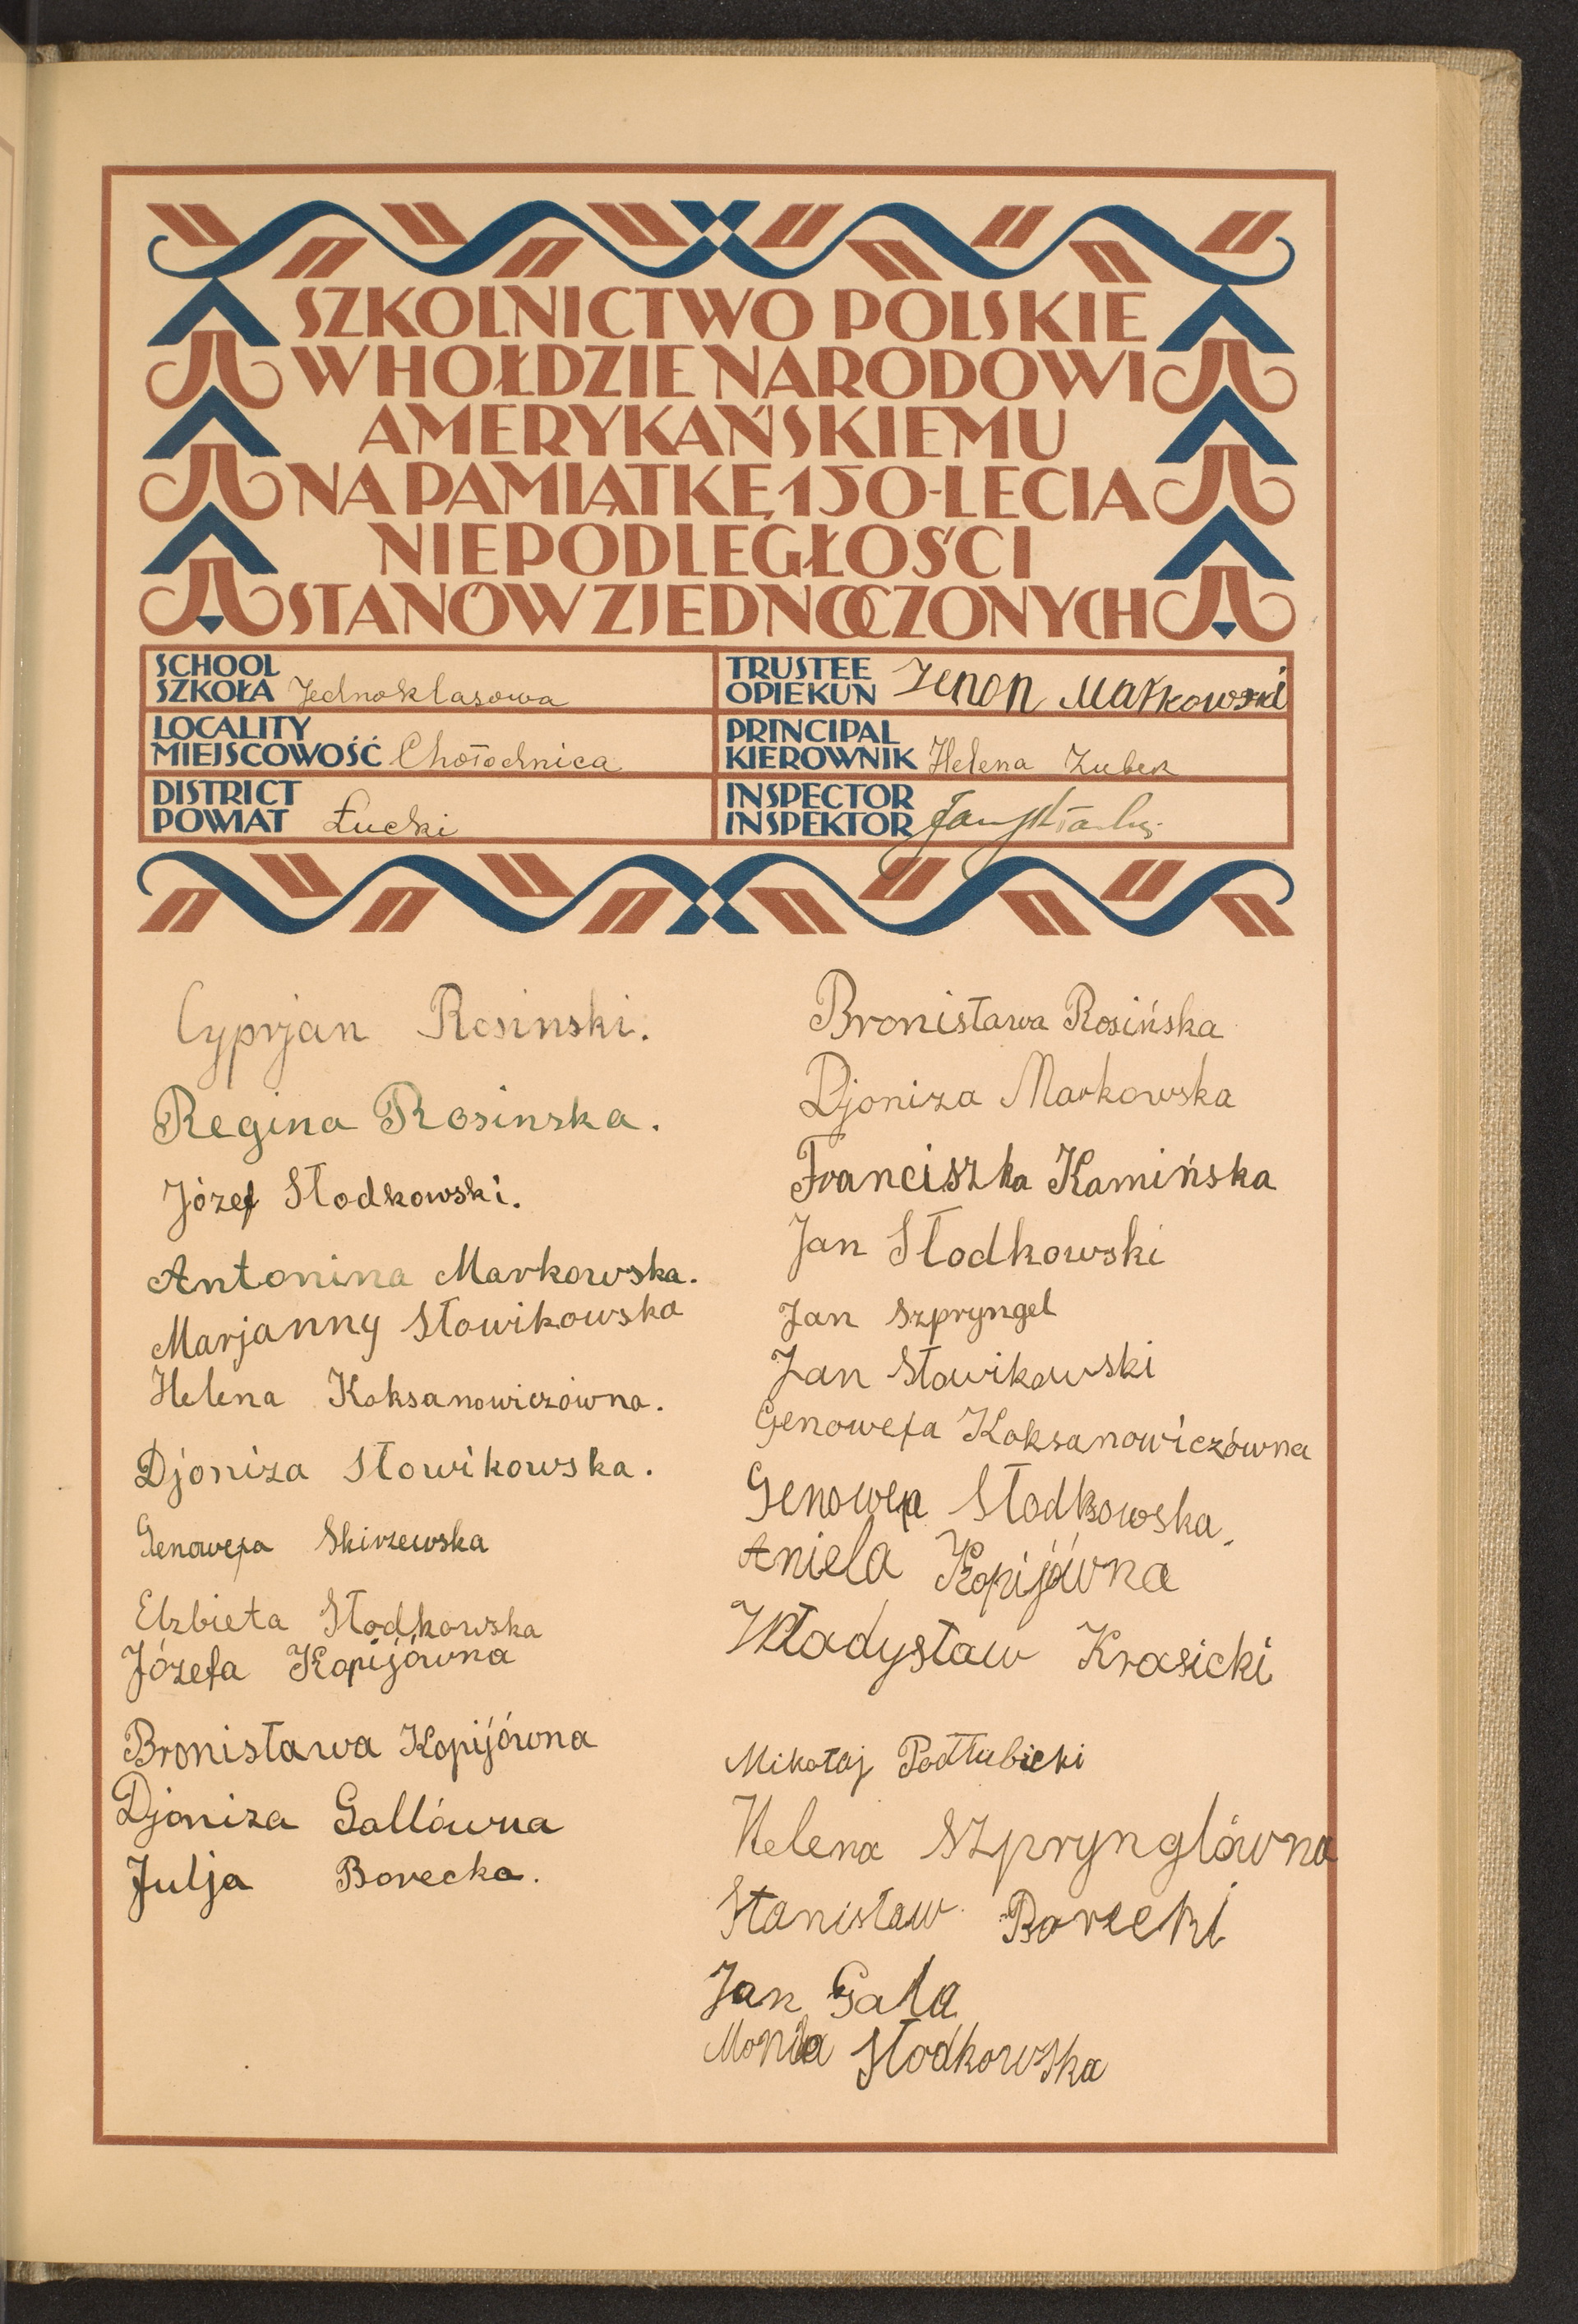 SZKOLNICTWO POLSKIE
W HOŁDZIE NARODOWI
AMERYKAŃSKIEMU
NA PAMIĄTKĘ 150-LECIA
NIEPODLEGŁOŚCI
STANÓW ZJEDNOCZONYCH
SCHOOL
SZKOŁA Jednoklasowa
LOCALITY
MIEJSCOWOŚĆ Chołodnica
DISTRICT
POWIAT Łucki
TRUSTEE
OPIEKUN Zenon Markowski
PRINCIPAL
KIEROWNIK Helena Zuber
INSPECTOR
INSPEKTOR Jan
Cyprjan Rosinski.
Regina Rosinska.
Józef Słodkowski.
Antonina Markowska.
Marjanny Słowikowska
Helena Koksanowiczówna.
Djoniza Słowikowska.
Genowefa Skirzewska
Elzbieta Słodkowska
Józefa Kopijówna
Bronisława Kopijówna
Djoniza Gallówna
Julja Borecka.
Bronisława Rosińska
Djoniza Markowska
Franciszka Kamińska
Jan Słodkowski
Jan Szpryngel
Jan Słowikowski
Genowefa Koksanowiczówna
Genowefa Słodkowska.
Aniela Kopijówna
Władysław Krasicki
Mikołaj Podłubicki
Helena Szprynglówna
Stanisław Borecki
Jan Gala
Słodkowska